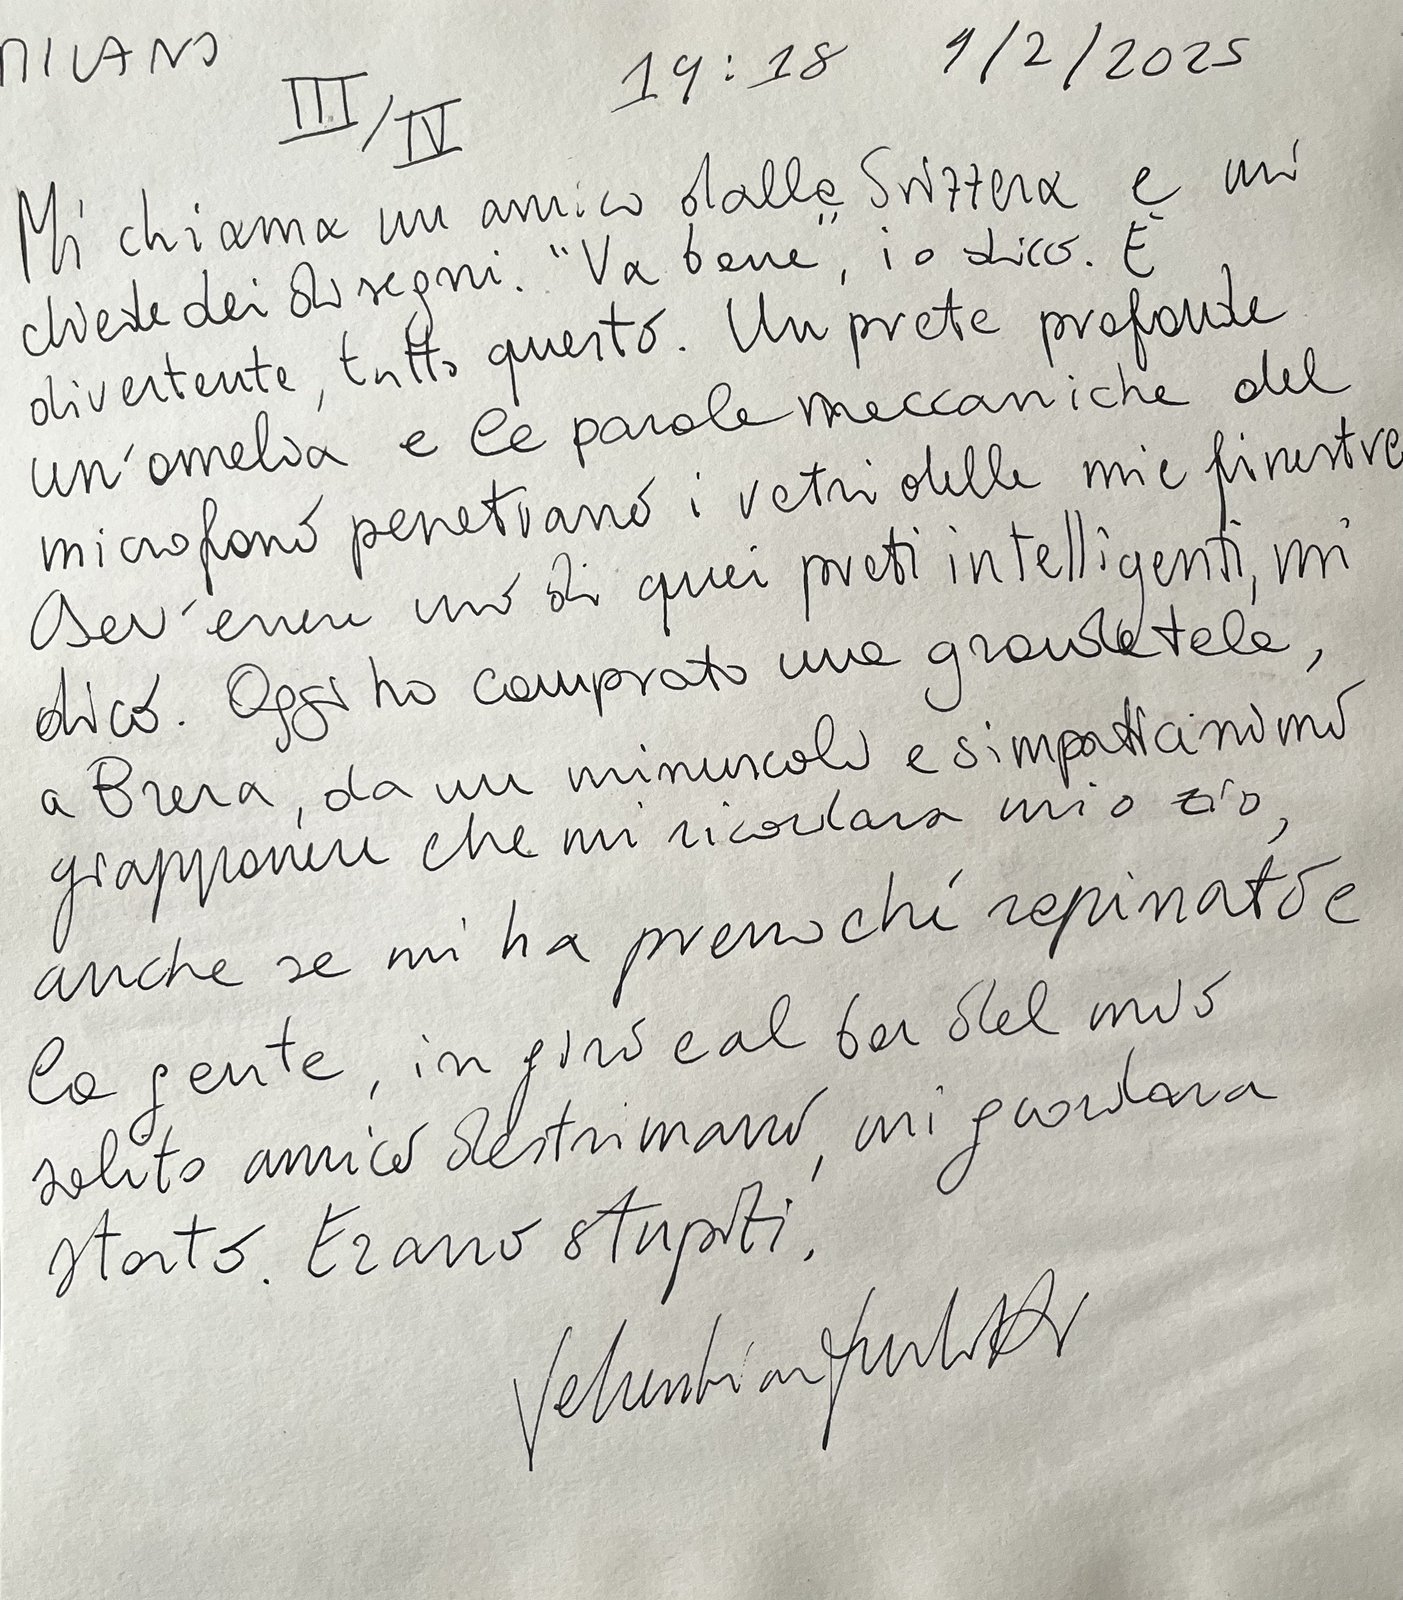 MILANO 19:18 1/2/2025
III/IV
Mi chiama un amico dalla Svizzera e mi
chiede dei disegni. "Va bene", io dico. È
divertente, tutto questo. Un prete profonde
un'omelia e le parole meccaniche del
microfono penetrano i vetri delle mie finestre
Dev'essere uno di quei preti intelligenti, mi
dico. Oggi ho comprato una grande tela,
a Brera, da un minuscolo e simpaticissimo
giapponese che mi ricordava mio zio,
anche se mi ha preso ché e
la gente, in giro e al bar del mio
solito amico destrimano, mi guardava
storto. Erano stupiti.